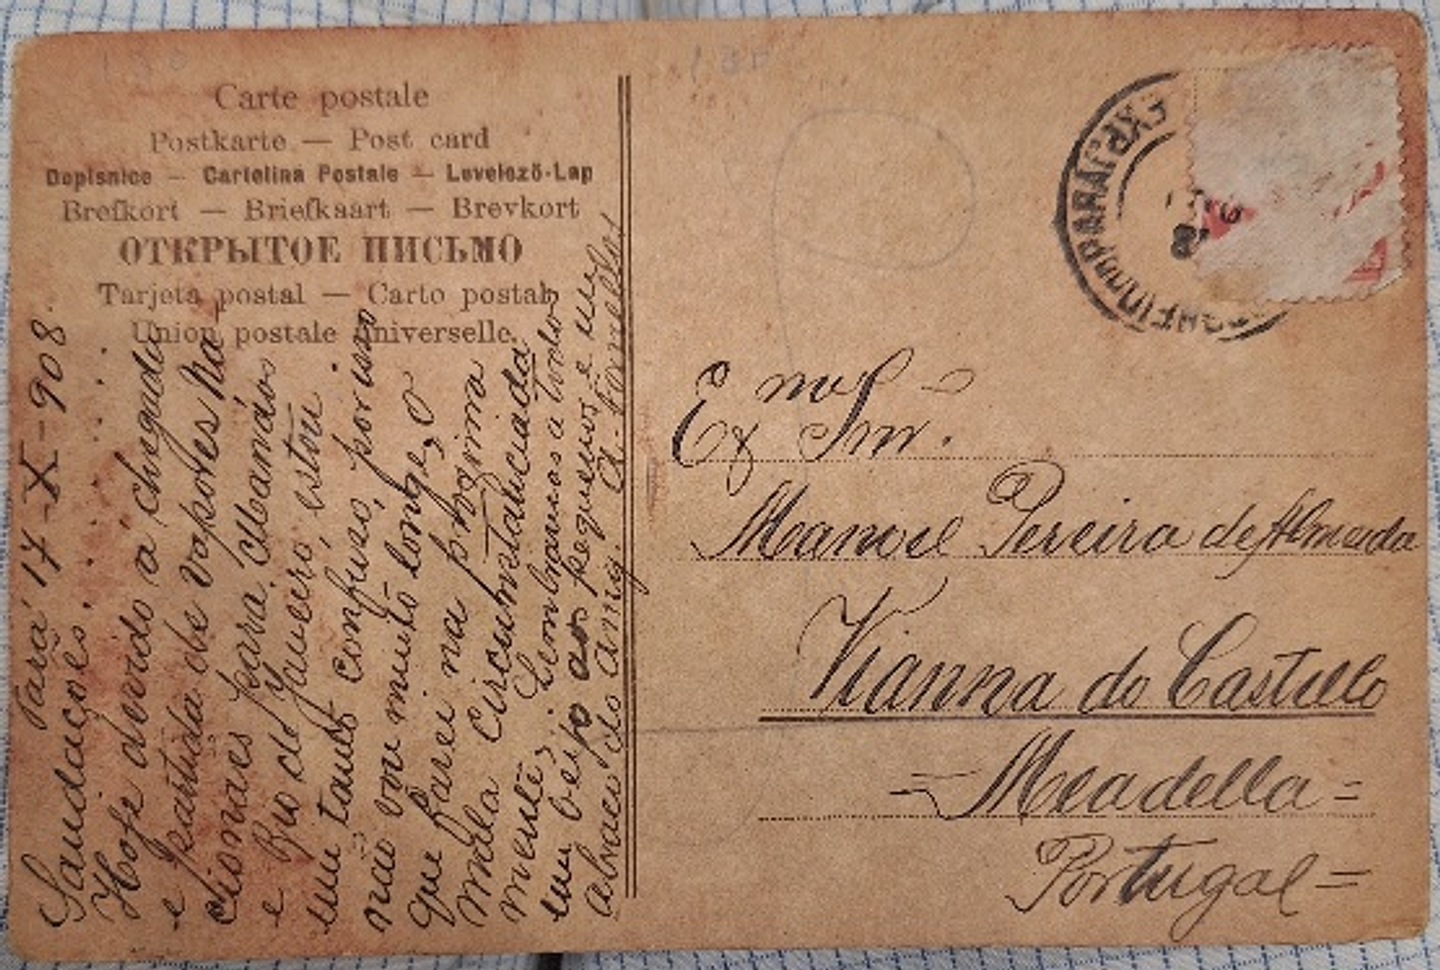 Carte postale
Postkarte — Post card
Dopisnice — Cartolina Postale — Levelező-Lap
Brefkort — Briefkaart — Brevkort
ОТКРЫТОЕ ПИСЬМО
Tarjeta postal — Carto postal
Union postale universelle.
Pará 17-X-908.
Saudações.
Hoje devido a chegada
e partida de vapores Na
cionaes para Manáos
e Rio de Janeiro, estou
um tanto confuso, por isso
não vou muito longe, o
que farei na proxima
mala circumstanciada
mente. Lembranças a todos
um beijo aos pequenos e um
abraço do Amg.
Exmo Snr.
Manoel Pereira de Almeida
Vianna do Castello
= Meadella =
Portugal =
PARÁ